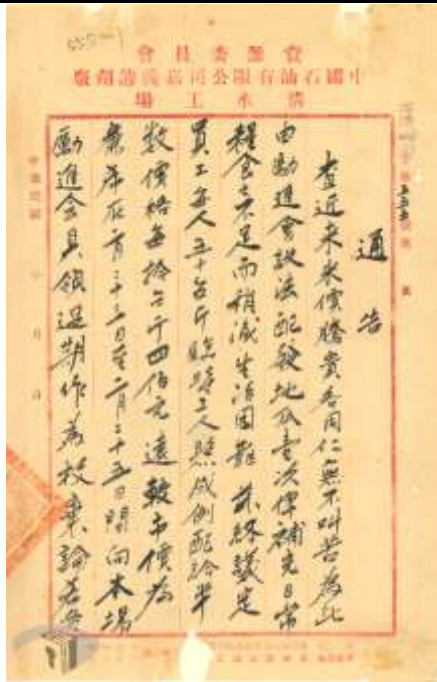 資源委員會
中國石油有限公司嘉義溶劑廠
水工場
通告
查近來米價騰貴各同仁無不叫苦為此
由勵進會設法配發地瓜壹次俾補充日常
糧食之不足而稍減生活困難茲經議定
員工每人五十台斤臨時工人照成例配給半
數價格每拾台斤四佰元遠較市價為
廉希在二月二十三日至二月二十五日間向本場
勵進會具領逾期作為放棄論若無
中華民國 年 月 日